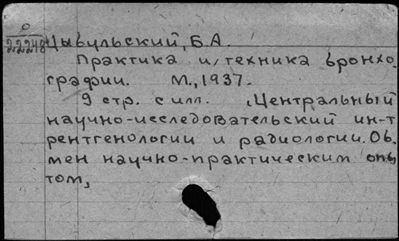 О
22240
Цывульский, Б.А.
Практика и техника бронхо-
графии. М., 1937.
9 стр. с илл. (Центральный
научно-исследовательский ин-т
рентгенологии и радиологии. Об-
мен научно-практическим опы
том,